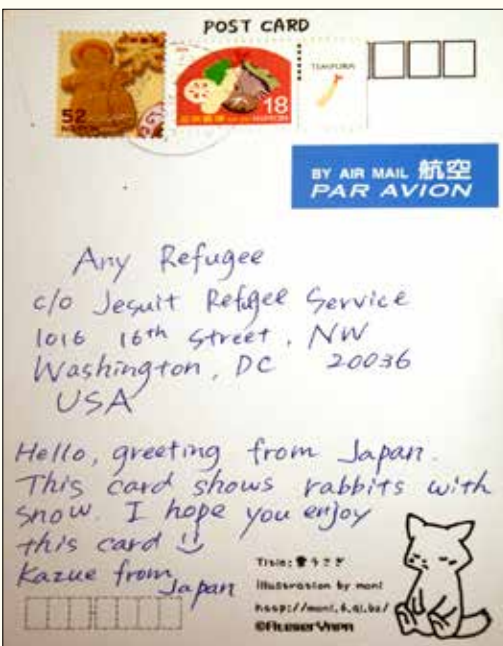 POST CARD
52
NIPPON
18
日本郵便 NIPPON
TEMPURA
BY AIR MAIL 航空
PAR AVION
Any Refugee
c/o Jesuit Refugee Service
1016 16th Street, NW
Washington, DC 20036
USA
Hello, greeting from Japan.
This card shows rabbits with
snow. I hope you enjoy
this card
Kazue from
Japan
Title: 雪うさぎ
illustration by moni